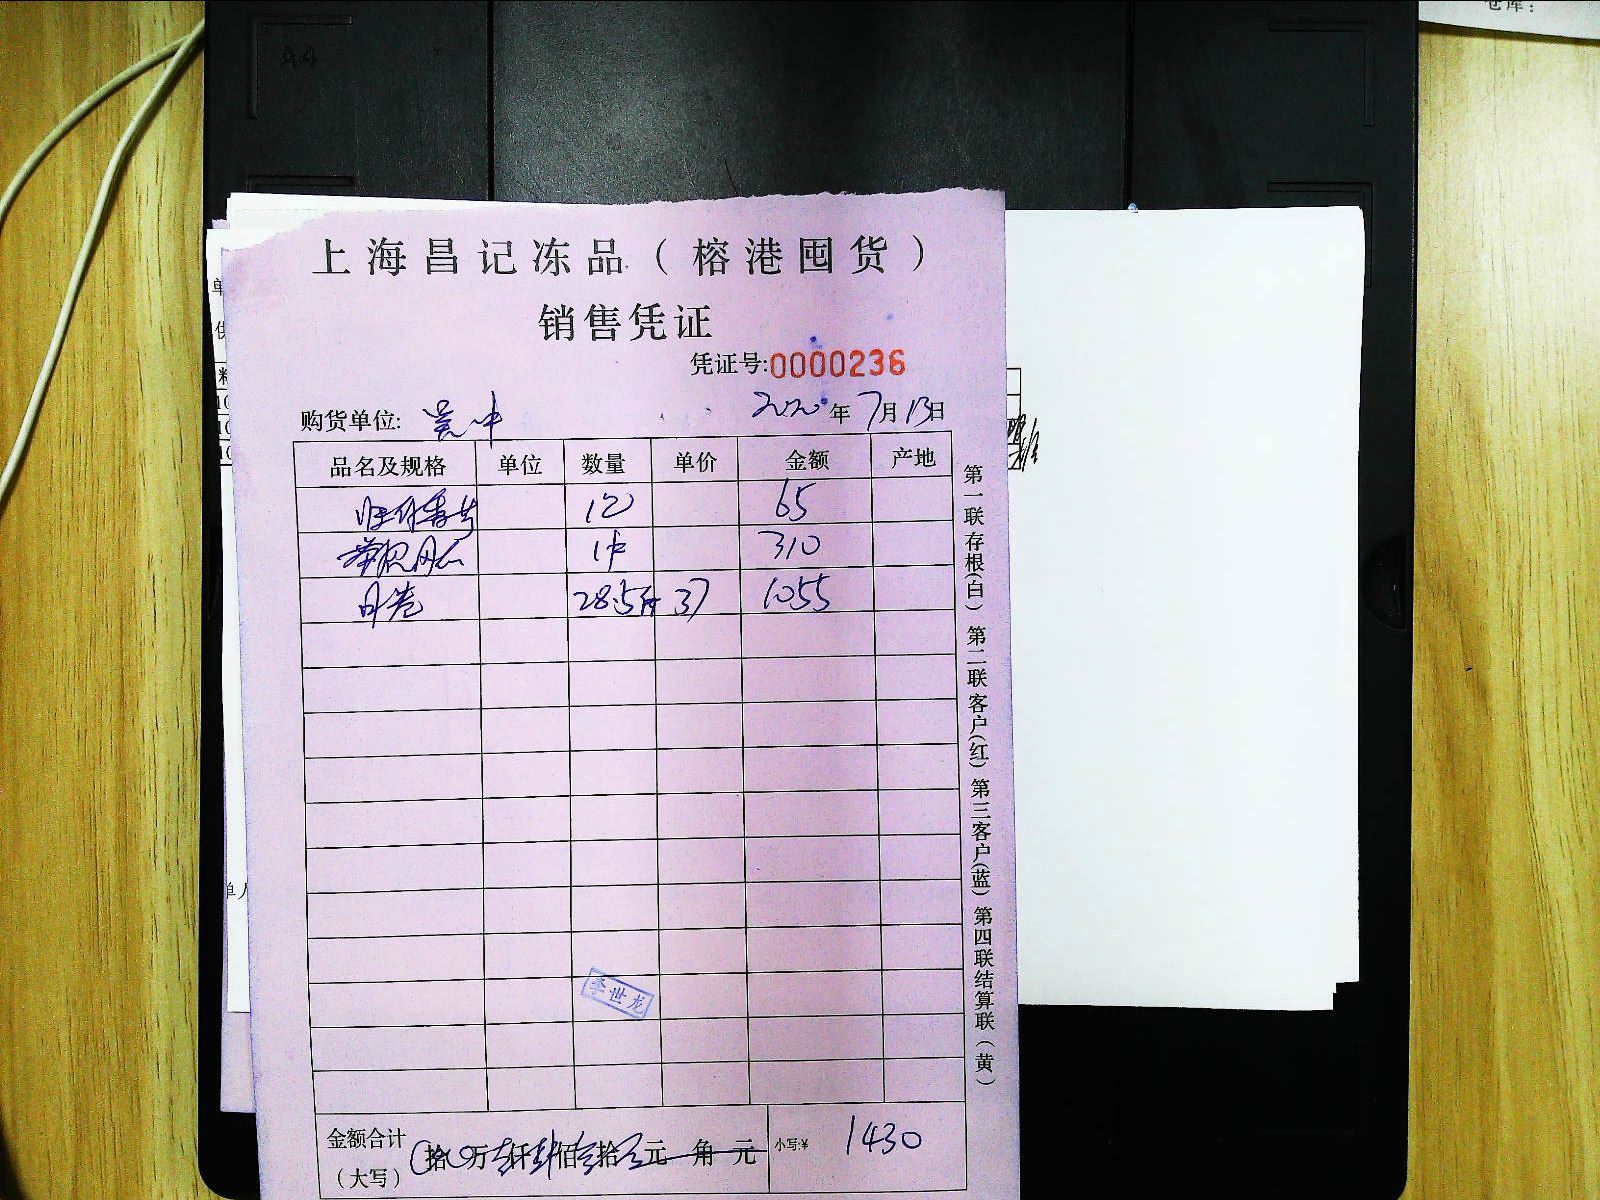 仓库:
A4
上海昌记冻品（榕港囤货）
销售凭证
凭证号:0000236
购货单位: 吴中 2020年7月13日
品名及规格 单位 数量 单价 金额 产地
65
1件 310
28.5斤 37 1055
第一联存根(白) 第二联客户(红) 第三客户(蓝) 第四联结算联(黄)
李世龙
金额合计
(大写) 拾万仟佰拾元角元 小写:¥ 1430